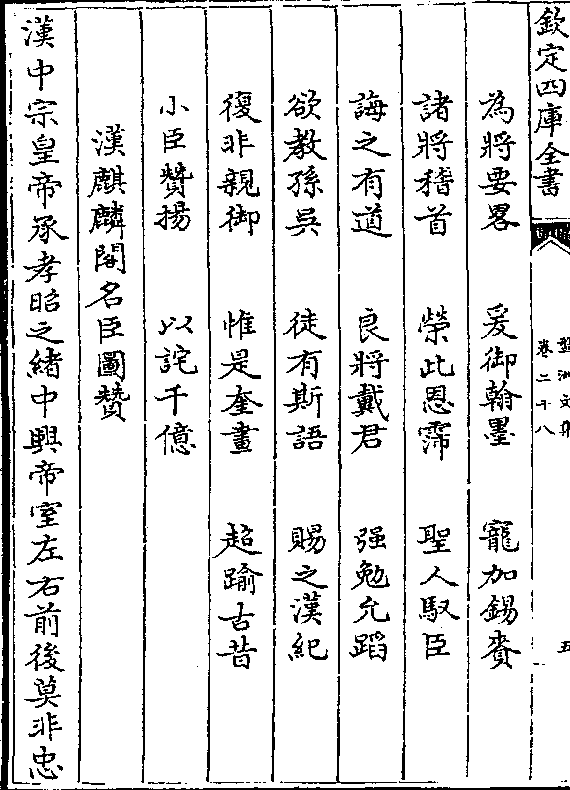 欽定四庫全書
盤洲文集
卷二十八
五
為將要畧 爰御翰墨 寵加錫賚
諸將稽首 榮此恩霈 聖人馭臣
誨之有道 良將戴君 强勉允蹈
欲教孫吳 徒有斯語 賜之漢紀
復非親御 惟是奎畫 超踰古昔
小臣贊揚 以詫千億
漢麒麟閣名臣圖贊
漢中宗皇帝承孝昭之緒中興帝室左右前後莫非忠